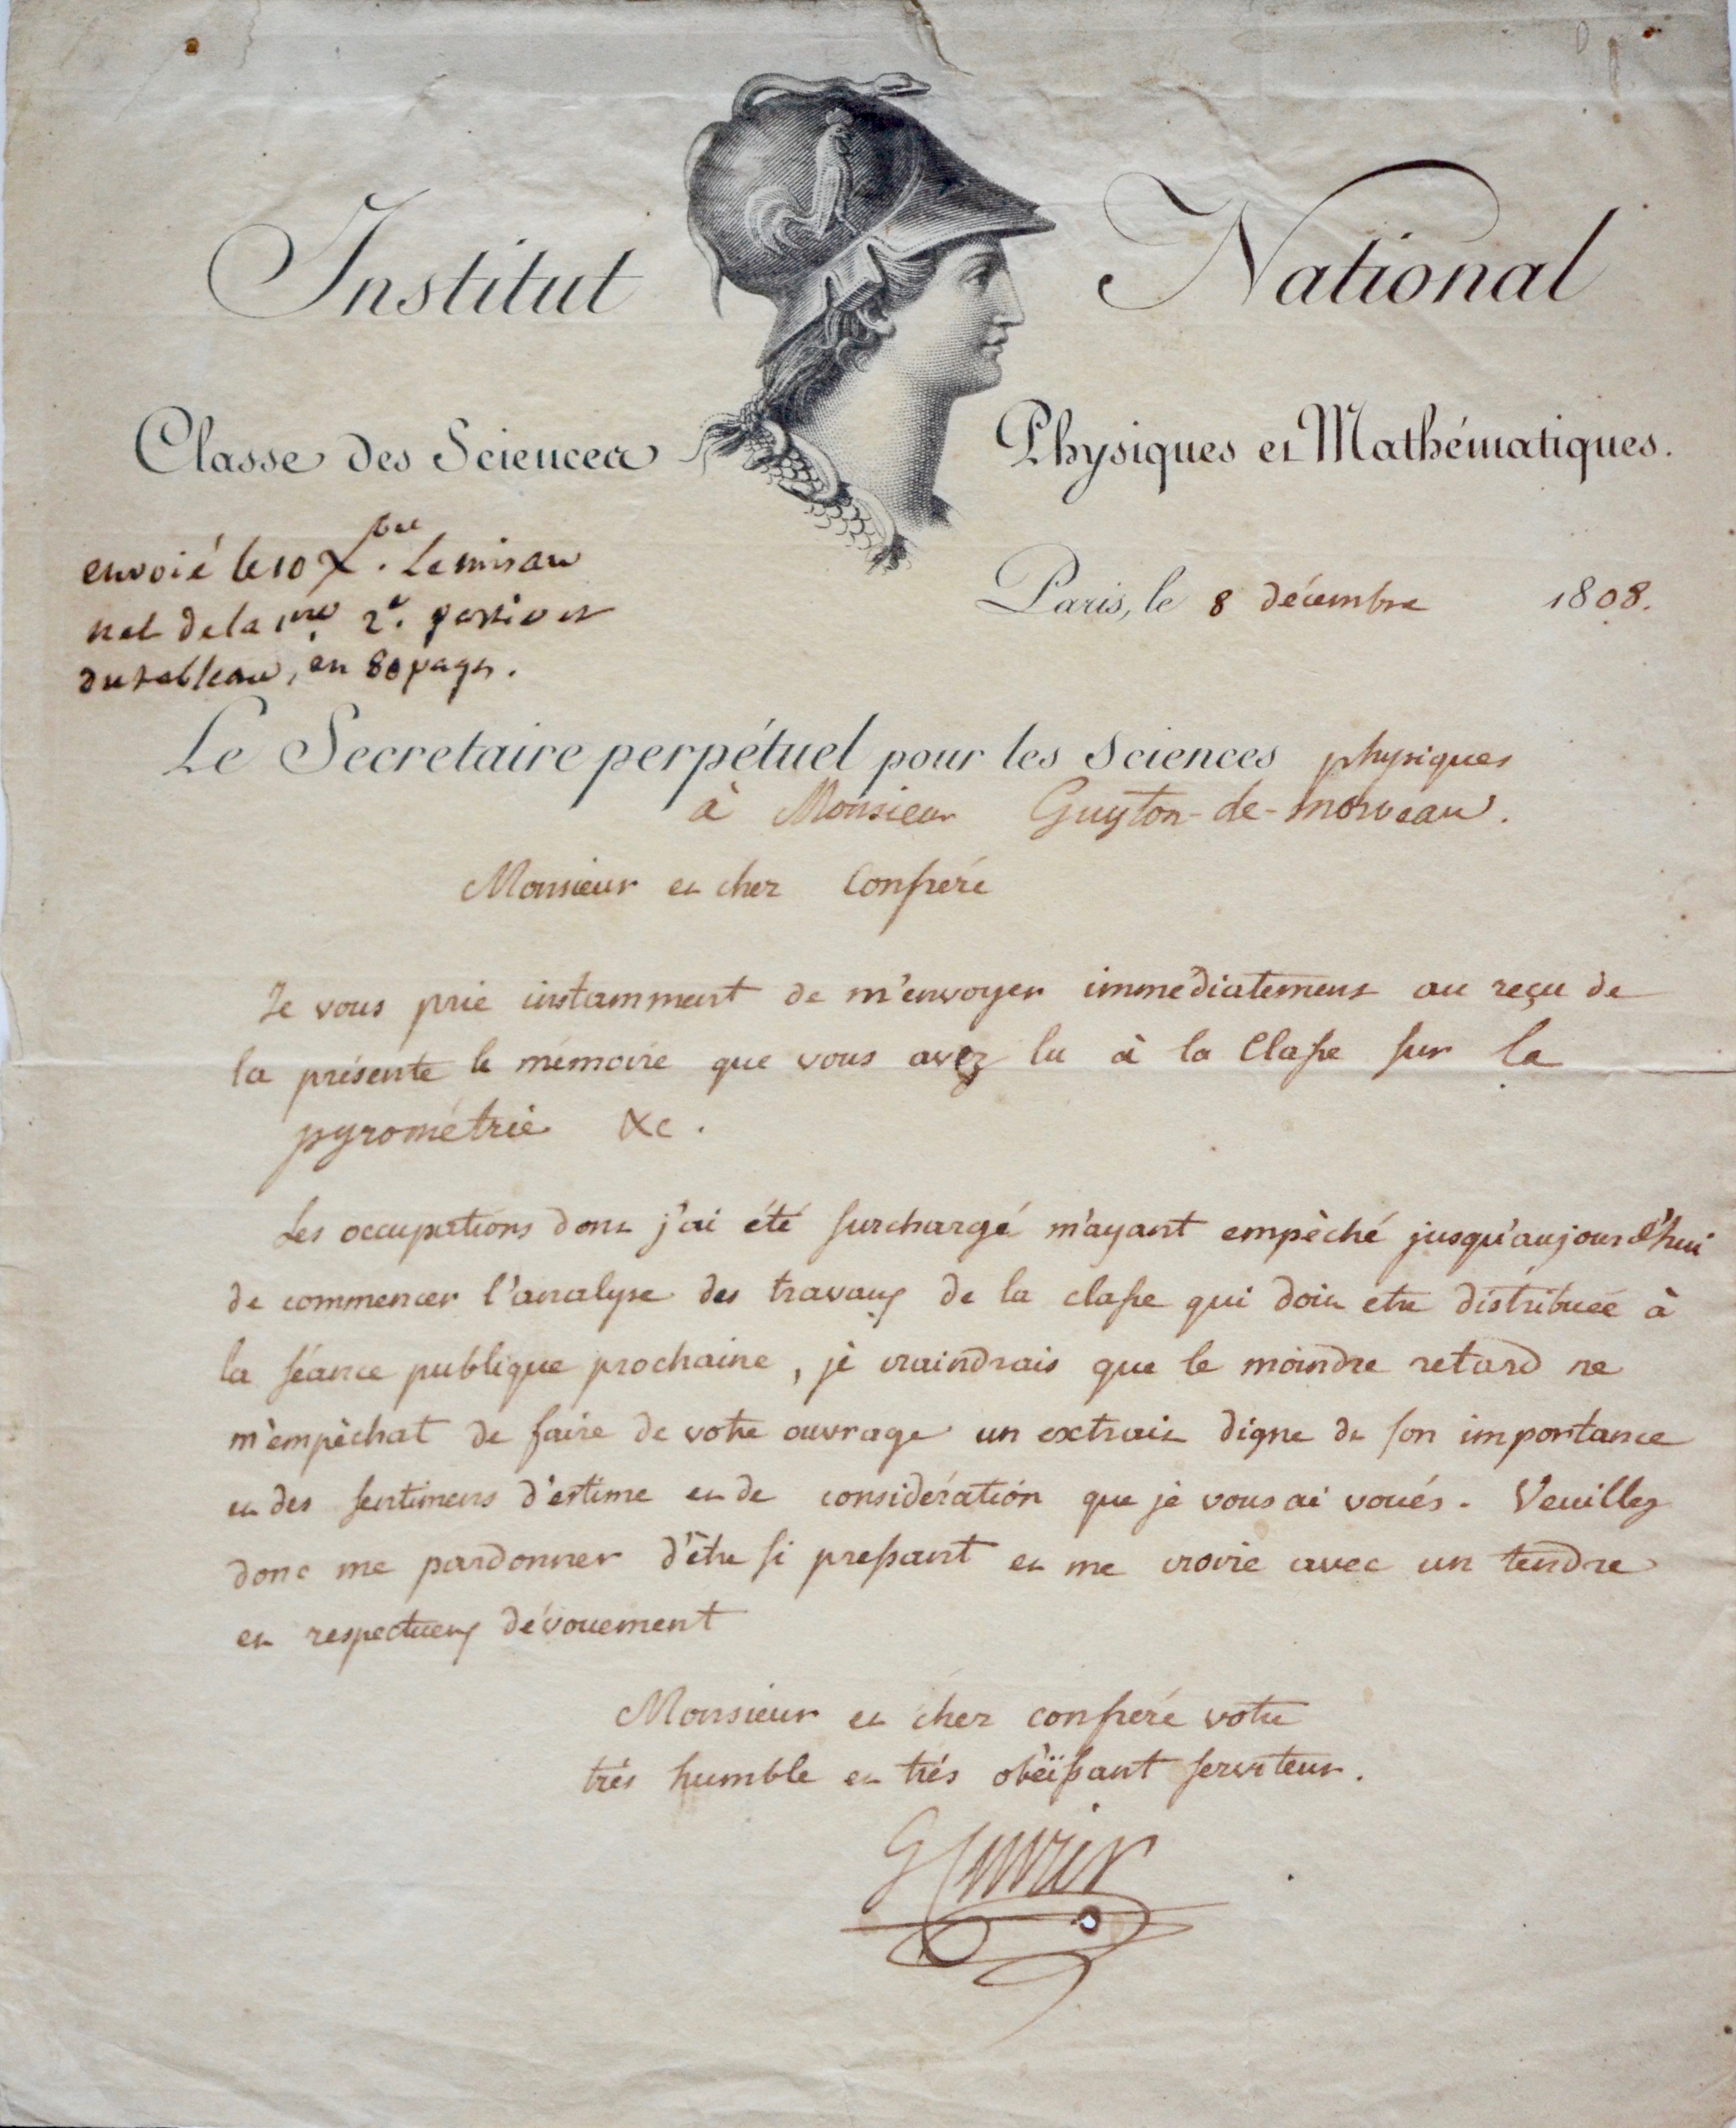 Institut National
Classe des Sciences Physiques et Mathématiques.
envoié le 10 Xbre. Le mis au
net de la 1re. 2e. partie et
du tableau, en 80 pages.
Paris, le 8 décembre 1808.
Le Secretaire perpétuel pour les Sciences physiques
à Monsieur Guyton-de-morveau.
Monsieur et cher Confrére
Je vous prie instamment de m'envoyer immédiatement au reçu de
la présente le mémoire que vous avez lu à la Classe sur la
pyrométrie &c.
Les occupations dont j'ai été surchargé m'ayant empèché jusqu'aujourd'hui
de commencer l'analyse des travaux de la classe qui doit etre distribuée à
la séance publique prochaine, je craindrais que le moindre retard ne
m'empèchat de faire de votre ouvrage un extrait digne de son importance
et des sentimens d'estime et de considération que je vous ai voués. Veuillez
donc me pardonner d'être si pressant et me croire avec un tendre
et respectueux dévouement
Monsieur et cher confrére votre
trés humble et trés obéïssant serviteur.
G Cuvier